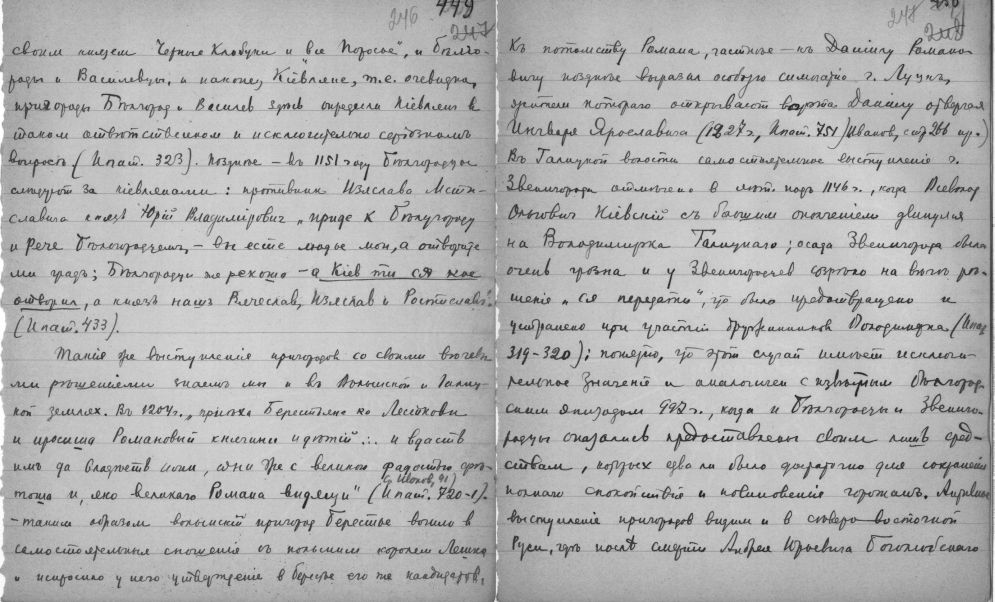 246 449
247
своим князем Черные Клобуки и все Поросье", и белго-
родцы и Василевцы, и наконец Кіевляне, т.е. очевидна,
пригороды Белгород и Василев здесь определи Кіевлян в
таком ответственном и исключительно серьезном
вопросе (Ипат. 323). Позднее – въ 1151 году Белгородцы
следуют за кіевлянами: противник Изяслава Мсти-
славича князь Юрій Владиміровичъ „приде к Белугороду
и рече Белогородцем, – вы есте людье мои, а отворите
ми градъ; Белгородци же рекоша – а Кіев ти ся кое
отворил, а князь нашъ Вячеслав, Изяслав и Ростиславъ".
(Ипат. 433).
Такія же выступленія пригородов со своими вечевы-
ми решеніями знаем мы и в Волынской и Галиц-
кой землях. Въ 1204 г. „приеха Берестьяне ко Лесткови
и просиша Романовый княгини и детій ... и вдасть
имъ да владеетъ ими, они же с великою радостью сре-
тоша и, яко великаго Романа видящи" (Ипат. 720-1).
– таким образом волынскій пригород Берестье вошло в
самостоятельныя сношенія съ польским королем Лешка
и испросило у него утвержденіе в Берестье его же кандидатов,
248
Къ потомству Романа, частнее – къ Даніилу Романо-
вичу позднее выразил особую симпатію г. Луцкъ,
жители котораго открывают ворота Даніилу отвергая
Ингваря Ярославича (1227 г., Ипат. 751) Иванов, стр 266 пр.)
Въ Галицкой волости самостоятельное выступленіе г.
Звенигорода отмечено в лет. подъ 1146 г., когда Всеволод
Ольгович Кіевскій съ большим ополчением двинулся
на Володимирка Галицкаго; осада Звенигорода была
очень грозна и у Звенигородцев созрело на вече ре-
шеніе „ся передати", что было предотвращено и
устранено при участіи дружинников Володимирка (Ипат
319-320); понятно, что этот случай имеет исключи-
тельное значеніе и аналогичен с известным Белгород-
ским эпизодом 997 г., когда и Белгородцы и Звениго-
родцы оказались предоставлены своим лишь сред-
ствам, которых едва ли было достаточно для сохраненія
полнаго спокойствія и повиновенія горожан. Активное
выступленіе пригородов видим и в северо-восточной
Руси, где после смерти Андрея Юрьевича Боголюбскаго